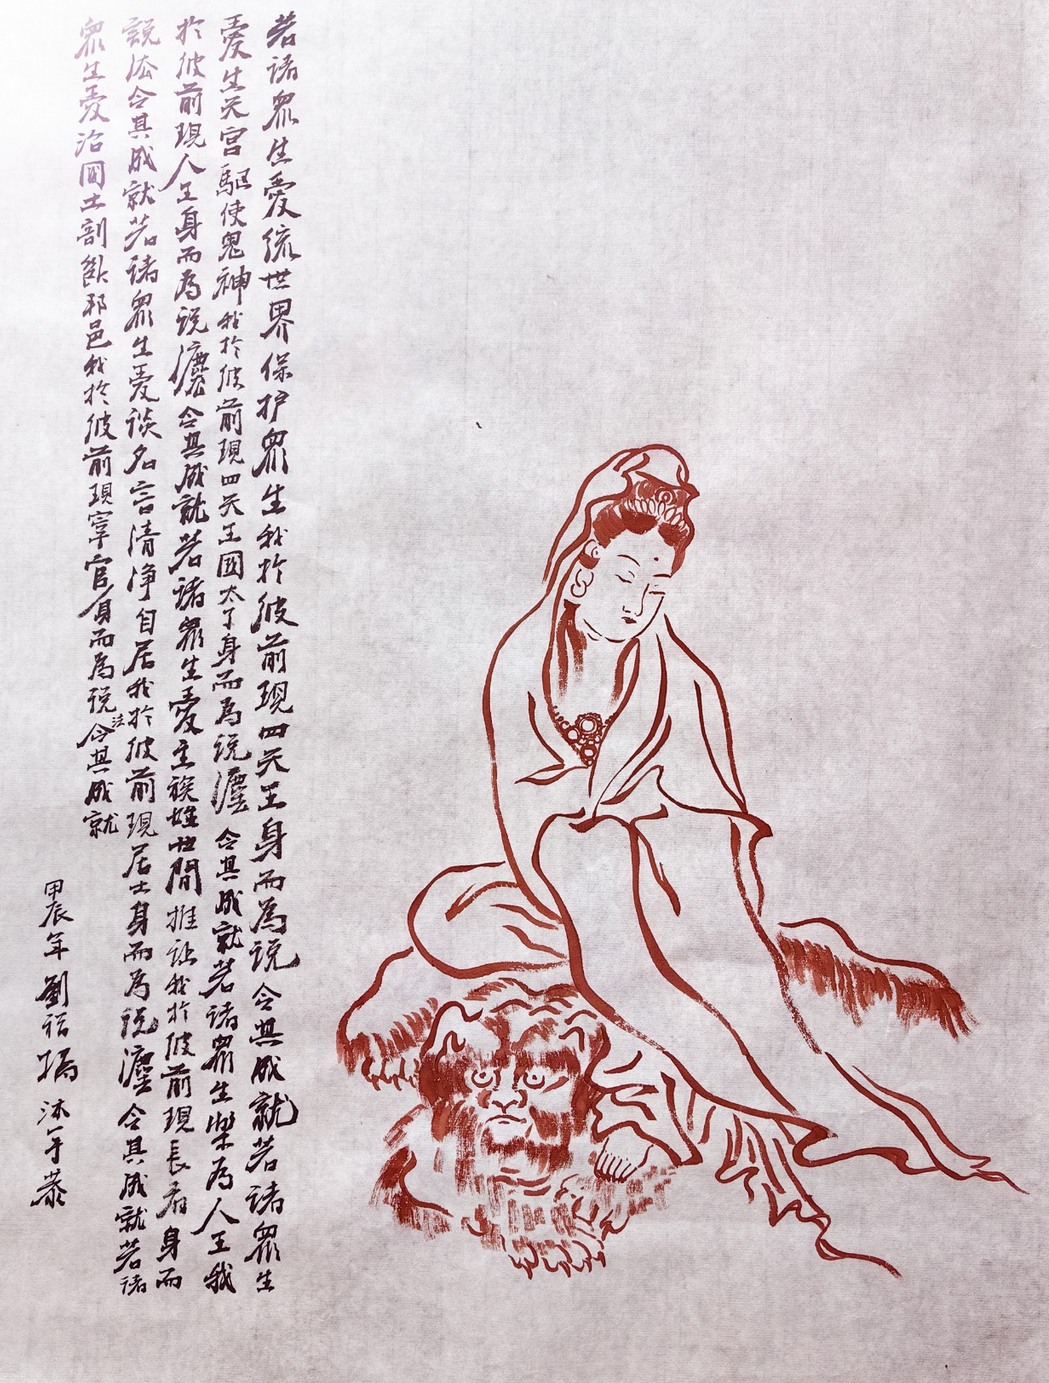 若诸眾生愛统世界保护眾生我於彼前現四天王身而為说令其成就若诸眾生
愛生天宫驅使鬼神我於彼前現四天王國太子身而為说灋令其成就若诸眾生樂為人王我
於彼前現人王身而為说灋令其成就若诸眾生愛主族姓世間推让我於彼前現長者身而
説法令其成就若诸眾生愛谈名言清净自居我於彼前現居士身而為说灋令其成就若诸
眾生愛治國土剖斷邦邑我於彼前現宰官身而為说法令其成就
甲辰年劉沐手恭